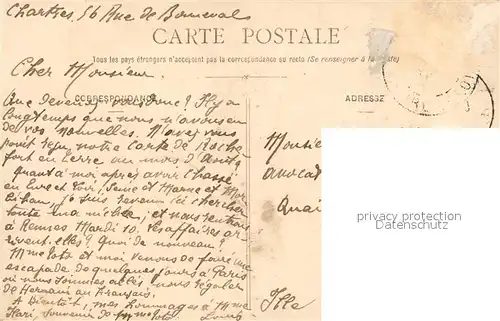 Chartres, 56 Rue de Bonneval
CARTE POSTALE
Tous les pays étrangers n'acceptent pas la correspondance au recto (Se renseigner à la Poste)
Cher Monsieur
CORRESPONDANCE
ADRESSE
Que devenez vous donc? Il y a
longtemps que nous n'avons eu
de vos nouvelles. N'avez vous
point reçu notre carte de Roche
fort en Terre au mois d'août
Quant à moi après avoir chassé
en Eure et Loir, Seine et Marne et Mor
bihan, je suis revenu ici chercher
toute ma et nous rentrons
à Rennes Mardi 10. Les affaires ar
rivent-elles? Quoi de nouveau?
Mme et moi venons de faire une
escapade de quelques jours à Paris
où nous sommes allés nous régaler
de Hernani au Français.
A Bientôt, mes hommages à Mme
souvenir de Mme Louis
Monsie
avocat
Quai
Ille
privacy protection
Datenschutz